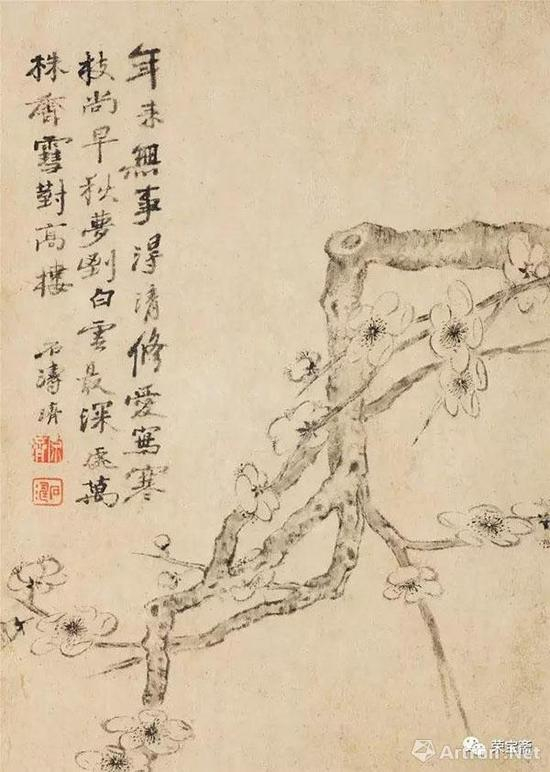 年来無事得清修愛寫寒
枝尚早秋夢到白雲最深處萬
株齊雪對高樓
石濤濟
荣宝斋
Artron.Net